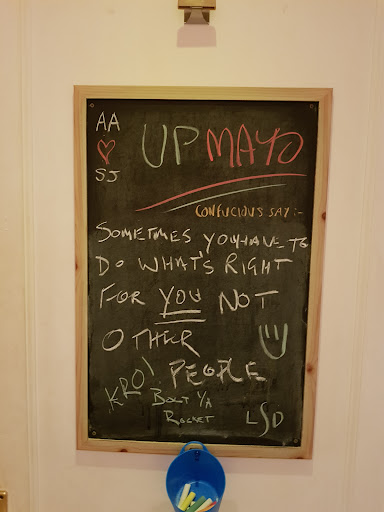 AA
♡
SJ
UP MAYO
CONFUCIOUS SAY:-
SOMETIMES YOU HAVE TO
DO WHAT'S RIGHT
FOR YOU NOT
OTHER
PEOPLE
KRO!
BOLT YA
ROCKET
LSD